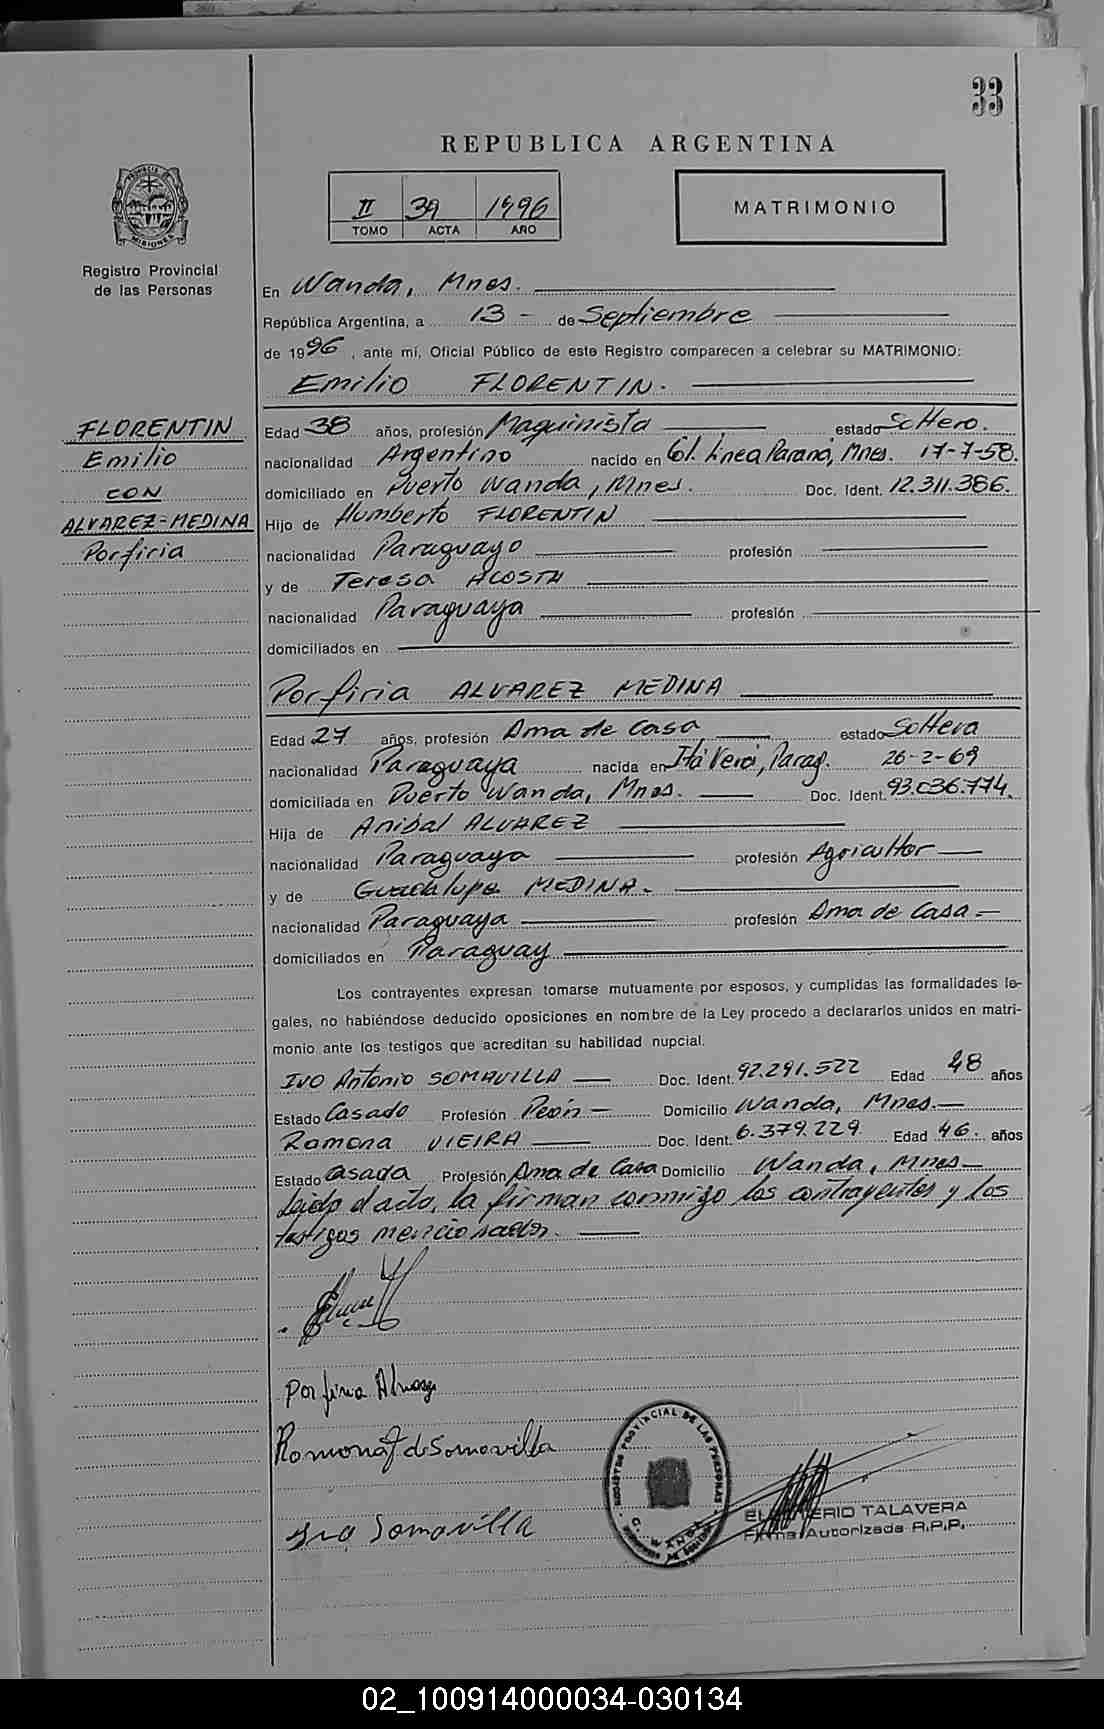 33
REPUBLICA ARGENTINA
II 39 1996
TOMO ACTA AÑO
MATRIMONIO
PROVINCIA DE MISIONES
Registro Provincial
de las Personas
En Wanda, Mnes.
República Argentina, a 13 - de Septiembre
de 1996, ante mí, Oficial Público de este Registro comparecen a celebrar su MATRIMONIO:
Emilio FLORENTIN.
FLORENTIN
Emilio
CON
ALVAREZ-MEDINA
Porfiria
Edad 38 años, profesión Maquinista estado Soltero.
nacionalidad Argentino nacido en Col. Linea Paraná, Mnes. 17-7-58.
domiciliado en Puerto Wanda, Mnes. Doc. Ident. 12.311.386.
Hijo de Humberto FLORENTIN
nacionalidad Paraguayo profesión
y de Teresa ACOSTA
nacionalidad Paraguaya profesión
domiciliados en
Porfiria ALVAREZ MEDINA
Edad 27 años, profesión Ama de Casa estado Soltera
nacionalidad Paraguaya nacida en Itá Verá, Parag. 26-2-69
domiciliada en Puerto Wanda, Mnes. Doc. Ident. 93.036.774.
Hija de Anibal ALVAREZ
nacionalidad Paraguaya profesión Agricultor
y de Guadalupe MEDINA.
nacionalidad Paraguaya profesión Ama de Casa -
domiciliados en Paraguay
Los contrayentes expresan tomarse mutuamente por esposos, y cumplidas las formalidades le-
gales, no habiéndose deducido oposiciones en nombre de la Ley procedo a declararlos unidos en matri-
monio ante los testigos que acreditan su habilidad nupcial.
Ivo Antonio SOMAVILLA Doc. Ident. 92.291.522 Edad 48 años
Estado Casado Profesión Peón - Domicilio Wanda, Mnes.-
Ramona VIEIRA Doc. Ident. 6.379.229 Edad 46. años
Estado Casada Profesión Ama de Casa Domicilio Wanda, Mnes-
Leido el acta, la firman conmigo los contrayentes y los
testigos mencionados.
Porfiria Alvarez
Ramona de Somavilla
Ivo Somavilla
REGISTRO PROVINCIAL DE LAS PERSONAS
WANDA
ERIO TALAVERA
Firma Autorizada R.P.P.
02_100914000034-030134